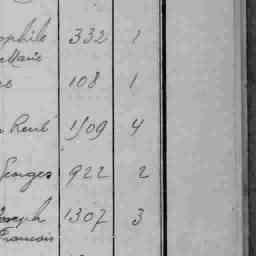 ophile 332 1
Marie
108 1
René 1509 4
Georges 922 2
Joseph 1307 3
Francois